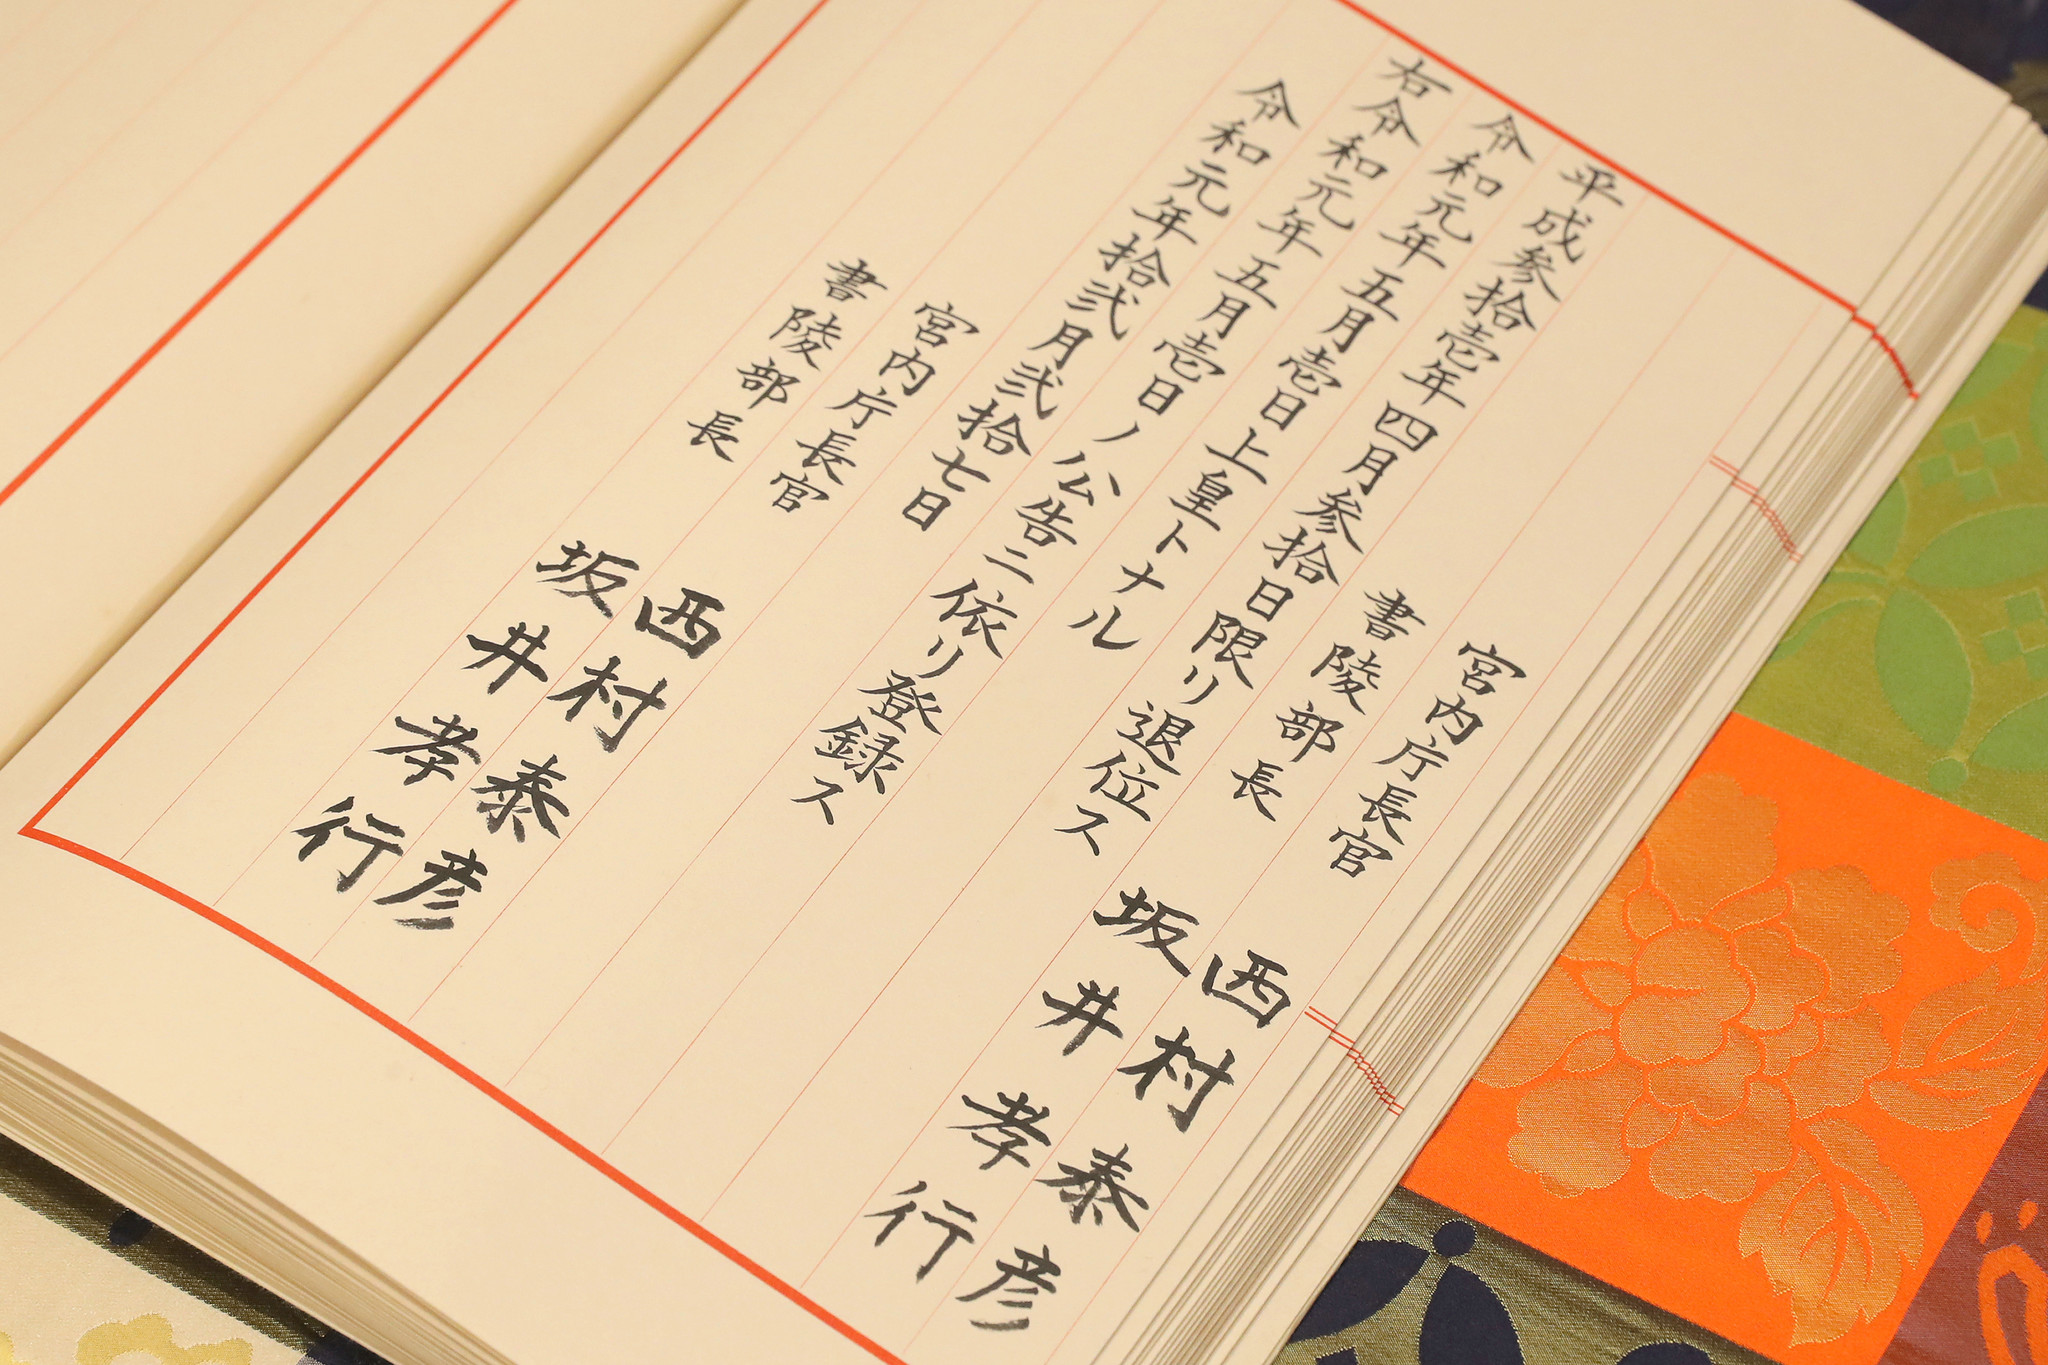 宮内庁長官 西村泰彦
書陵部長 坂井孝行
平成参拾壱年四月参拾日限リ退位ス
令和元年五月壱日上皇トナル
右令和元年五月壱日ノ公告ニ依リ登録ス
令和元年拾弐月弐拾七日
宮内庁長官 西村泰彦
書陵部長 坂井孝行